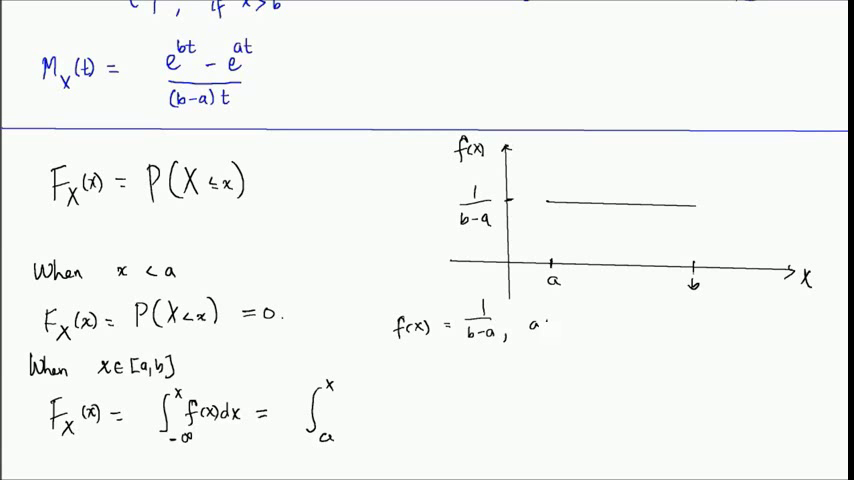 1, if x>b
M_X(t) = (e^{bt} - e^{at}) / ((b-a)t)
F_X(x) = P(X ≤ x)
When x < a
F_X(x) = P(X<x) = 0.
When x ∈ [a,b]
F_X(x) = ∫_{-∞}^{x} f(x)dx = ∫_{a}^{x}
f(x)
1/(b-a)
a b X
f(x) = 1/(b-a), a